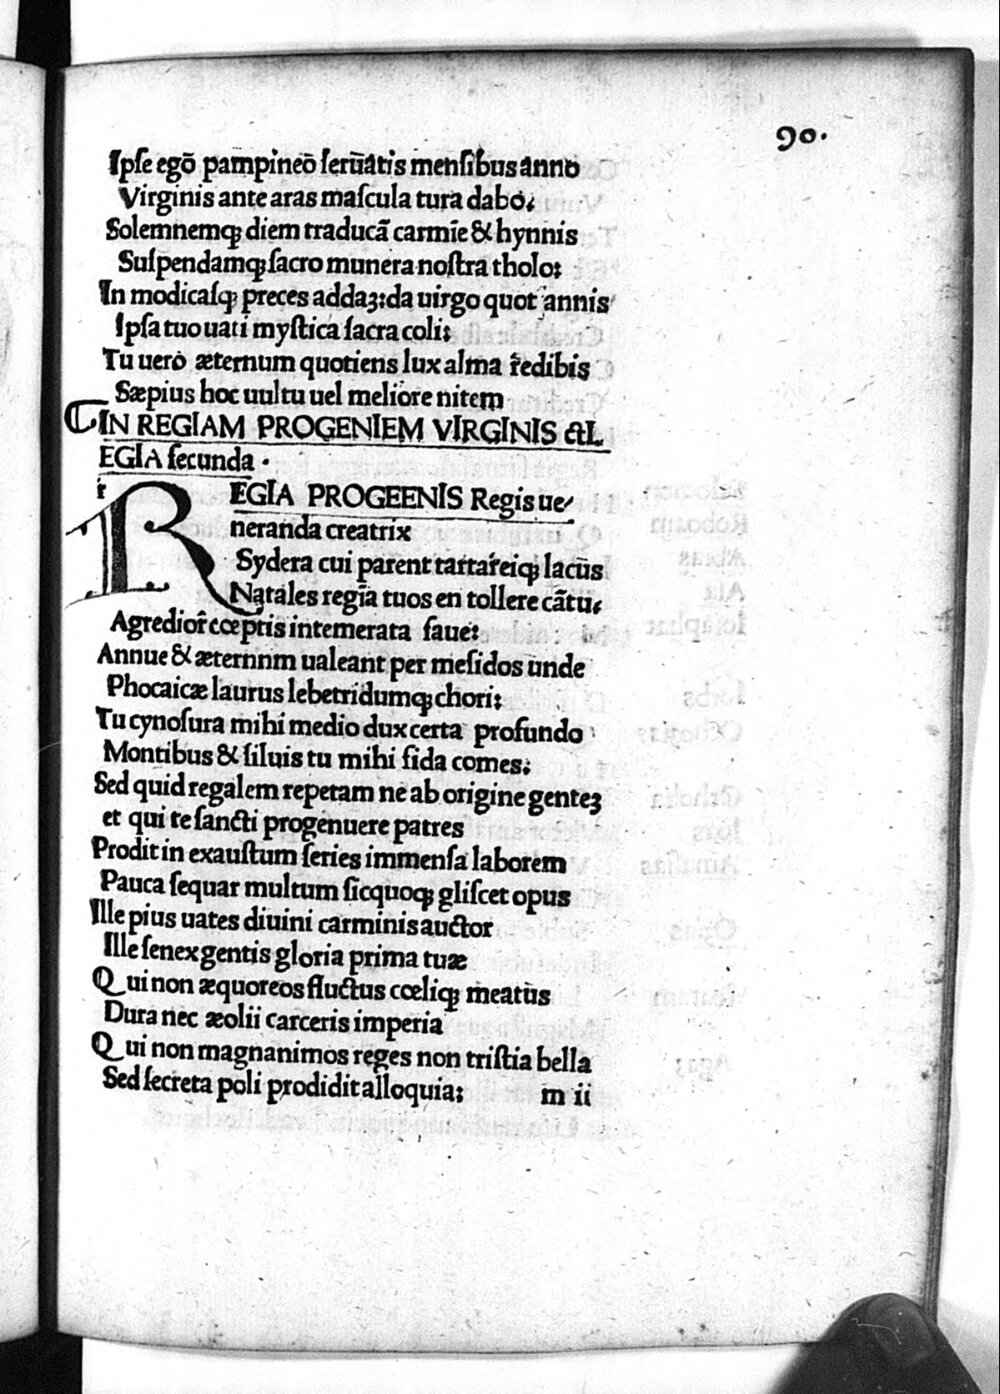 90.
Ipſe egō pampineō ſerūatis menſibus anno
Virginis ante aras maſcula tura dabo:
Solemnemqꝫ diem traducā carmīe & hynnis
Suſpendamqꝫ ſacro munera noſtra tholo:
In modicaſqꝫ preces addaꝫ: da uirgo quot annis
Ipſa tuo uati myſtica ſacra coli:
Tu uero æternum quotiens lux alma redibis
Sæpius hoc uultu uel meliore nitem
IN REGIAM PROGENIEM VIRGINIS &L
EGIA ſecunda.
REGIA PROGEENIS Regis ue/
neranda creatrix
Sydera cui parent tartareiqꝫ lacus
Natales regīa tuos en tollere cātu:
Agredior cœptis intemerata faue:
Annue & æternnm ualeant per meſidos unde
Phocaicæ laurus lebetridumqꝫ chori:
Tu cynoſura mihi medio dux certa profundo
Montibus & ſiluis tu mihi fida comes:
Sed quid regalem repetam ne ab origine genteꝫ
et qui te ſancti progenuere patres
Prodit in exauſtum ſeries immenſa laborem
Pauca ſequar multum ſicquoqꝫ gliſcet opus
Ille pius uates diuini carminis auctor
Ille ſenex gentis gloria prima tuæ
Qui non æquoreos fluctus cœliqꝫ meatus
Dura nec æolii carceris imperia
Qui non magnanimos reges non triſtia bella
Sed ſecreta poli prodidit alloquia:
m ii